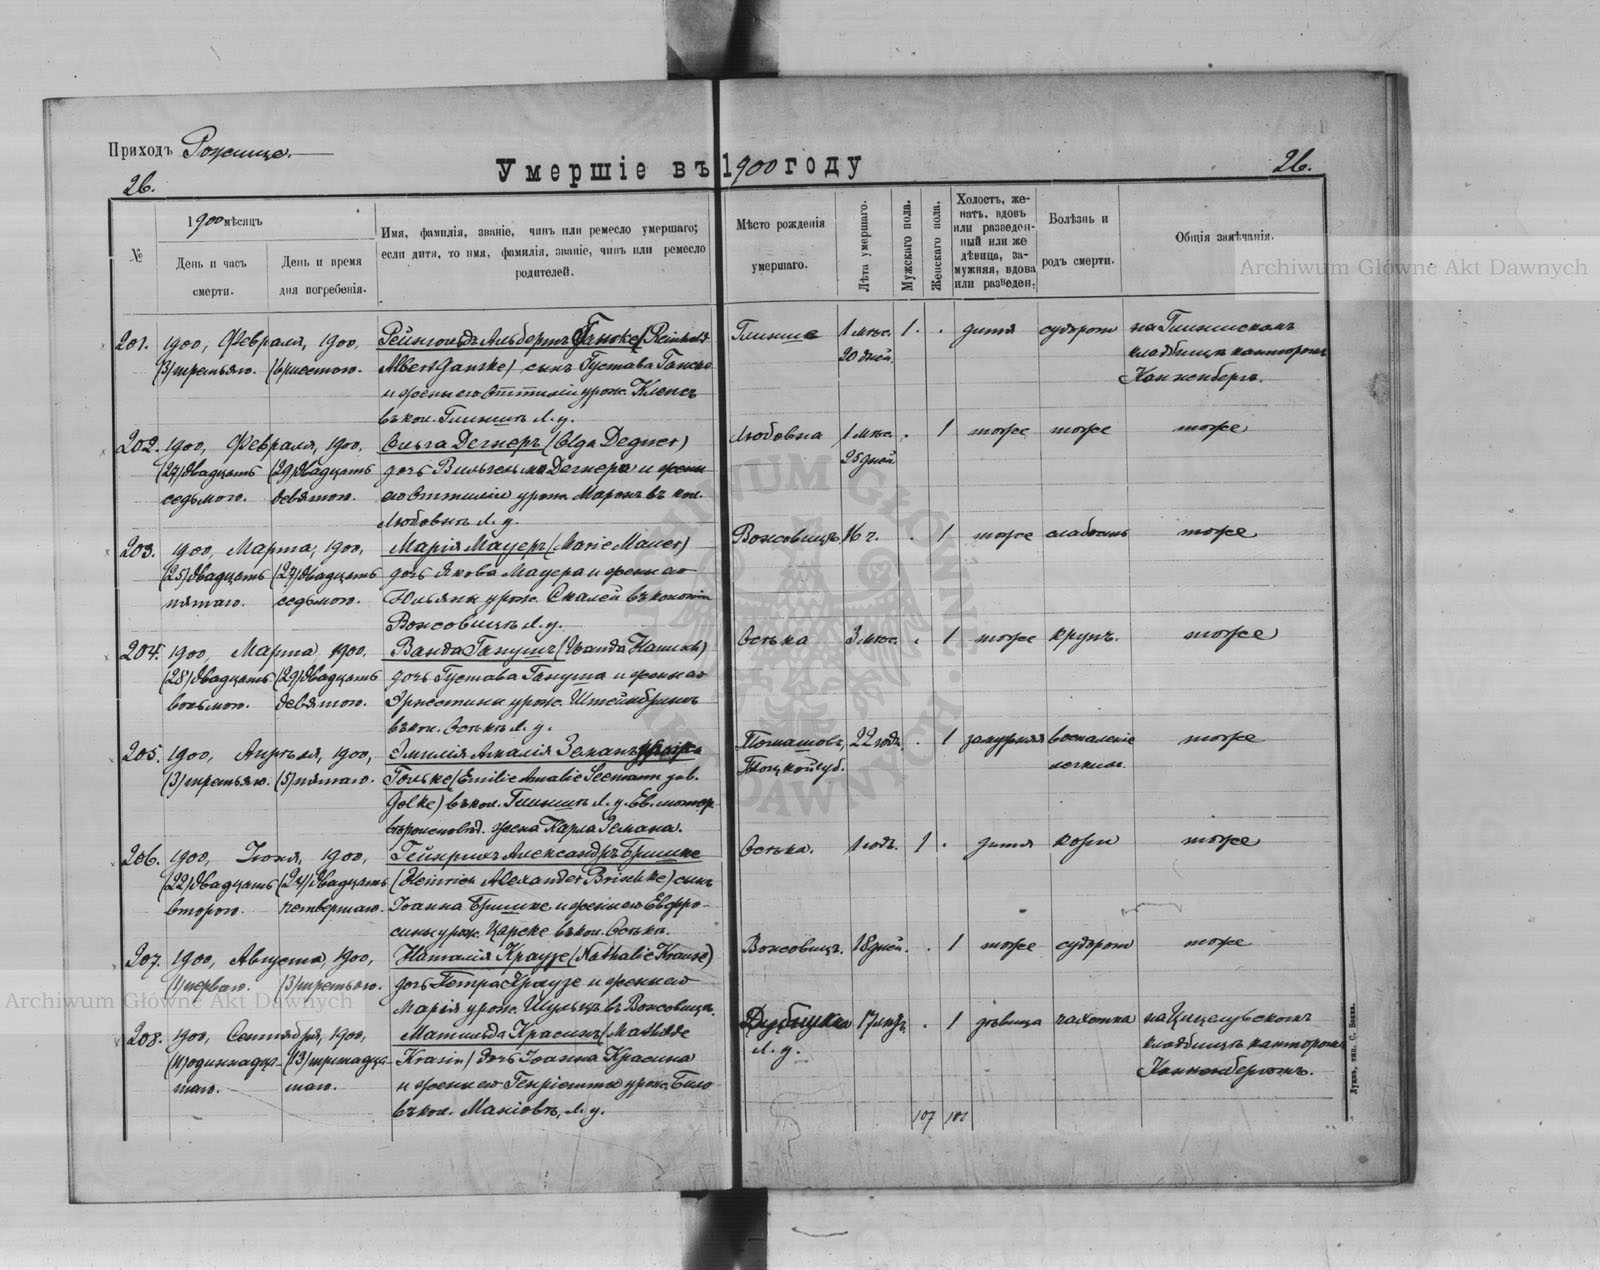 Приходъ Рожище.
26.
Умершіе въ 1900 году
26.
№
1900 мѣсяцъ
День и часъ смерти.
День и время дня погребенія.
Имя, фамилія, званіе, чинъ или ремесло умершаго;
если дитя, то имя, фамилія, званіе, чинъ или ремесло
родителей.
Мѣсто рожденія
умершаго.
Лѣта умершаго.
Мужскаго пола.
Женскаго пола.
Холостъ, же-
натъ, вдовъ
или разведен-
ный или же
дѣвица, за-
мужняя, вдова
или разведен.
Болѣзнь и
родъ смерти.
Общія замѣчанія.
Archiwum Główne Akt Dawnych
201. 1900, Февраля, 1900, Рейнгольдъ Альбертъ Ганске (Reinhold Глинище 1 мѣс. 1 . дитя судороги на Глинискомъ
(3) третьяго. (6) шестого. Albert Ganske) сынъ Густава Ганске 20 дней кладбищѣ канторомъ
и жены его Оттиліи урож. Клепсъ Конненбергъ.
въ кол. Глинищѣ Л. у.
202. 1900, Февраля, 1900. Ольга Дегнеръ (Olga Degner) Любовна 1 мѣс. . 1 тоже тоже тоже
(27) двадцать (29) двадцать дочь Вильгельма Дегнера и жены 25 дней
седьмого. девятого. его Оттиліи урож. въ кол.
Любовнѣ Л. у.
203. 1900, Марта, 1900, Марія Мауеръ (Marie Mauer) 16 ч. . 1 тоже слабость тоже
(25) двадцать (27) двадцать дочь Якова Мауера и жены его
пятаго. седьмого. Юльяны урож. въ колоніи
Л. у.
204. 1900, Марта, 1900. Ванда Гапушъ (Wanda Осѣка 3 мѣс. . 1 тоже крупъ. тоже
(28) двадцать (29) двадцать дочь Густава Гапуша и жены его
восьмого. девятого. Эрнестины урож. Штейнбринкъ
въ кол. Осѣкѣ Л. у.
205. 1900, Апрѣля, 1900, Эмилія Амалія Земанъ урожд. Томашовъ, 22 годъ. . 1 замужняя воспаленіе тоже
(3) третьяго. (5) пятаго. Гольке (Emilie Amalie Seemann geb. губ. легкихъ.
Golke) въ кол. Глинищѣ Л. у. Ев. лютер.
вѣроисповѣд. жена Карла Земана.
206. 1900, Іюня, 1900, Гейнрихъ Александръ Бришке Осѣка. 1 годъ. 1 . дитя корь тоже
(22) двадцать (24) двадцать (Heinrich Alexander Brischke) сынъ
второго. четвертаго. Іоанна Бришке и жены его Евфро-
сины урож. Царске въ кол. Осѣкѣ.
207. 1900, Августа, 1900, Наталія Краузе (Nathalie Krause) 18 дней. . 1 тоже судороги тоже
(1) перваго. (3) третьяго. дочь Петра Краузе и жены его
Маріи урож. Шульцъ въ
208. 1900, Сентября, 1900, Матильда Красинъ (Mathilde 17 лѣтъ. . 1 дѣвица чахотка на
(11) одиннадца- (13) тринадца- Krasin) дочь Іоанна Красина Л. у. кладбищѣ канторомъ
таго. таго. и жены его Генріетты урож. Конненбергомъ.
въ кол. Маніовѣ, Л. у.
107
Archiwum Główne Akt Dawnych
Луцкъ, тип. С. Бокка.